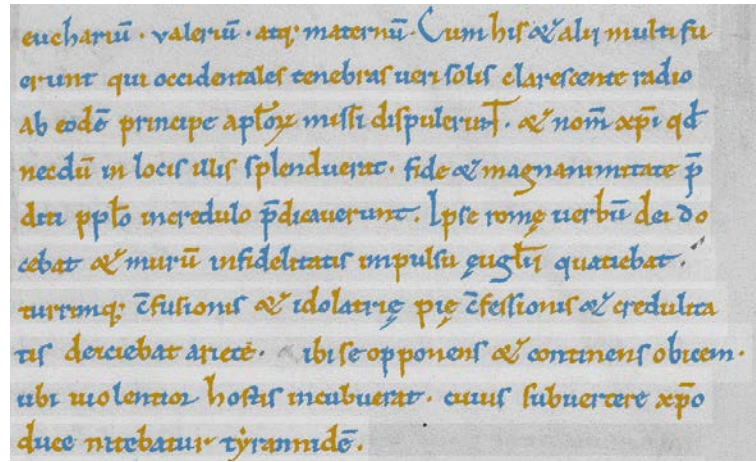 euchariū · valeriū · atq; maternū · Cum his & alij multi fu
erunt qui occidentales tenebras ueri solis clarescente radio
ab eodē principe apl̄oꝝ missi dispulerunt̄ · & nom̄ xp̄i qđ
necdū in locis illis splenduerat · fide & magnanimitate p̄
diti ppl̄o incredulo p̄dicauerunt · Ipse romę uerbū dei do
cebat & murū infidelitatis impulsu ęugl̄ii quatiebat ·
turrimq; c̄fusionis & idolatrię pię c̄fessionis & credulita
tis deiciebat ariete · ibi se opponens & continens obicem ·
ubi uiolentior hostis incubuerat · cuius subuertere xp̄o
duce nitebatur tẏrannidē ·